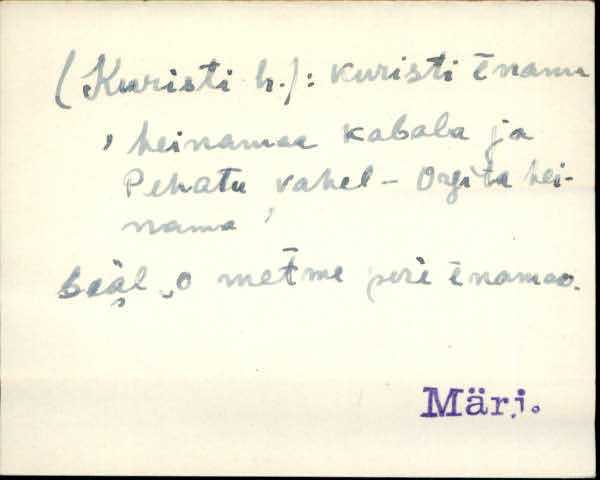 (Kuristi h.): kuristi ēnama
, heinamaa Kabala ja
Pehatu vahel – Orgita hei-
nama '
seäl o metme perē ēnamao.
Märj.